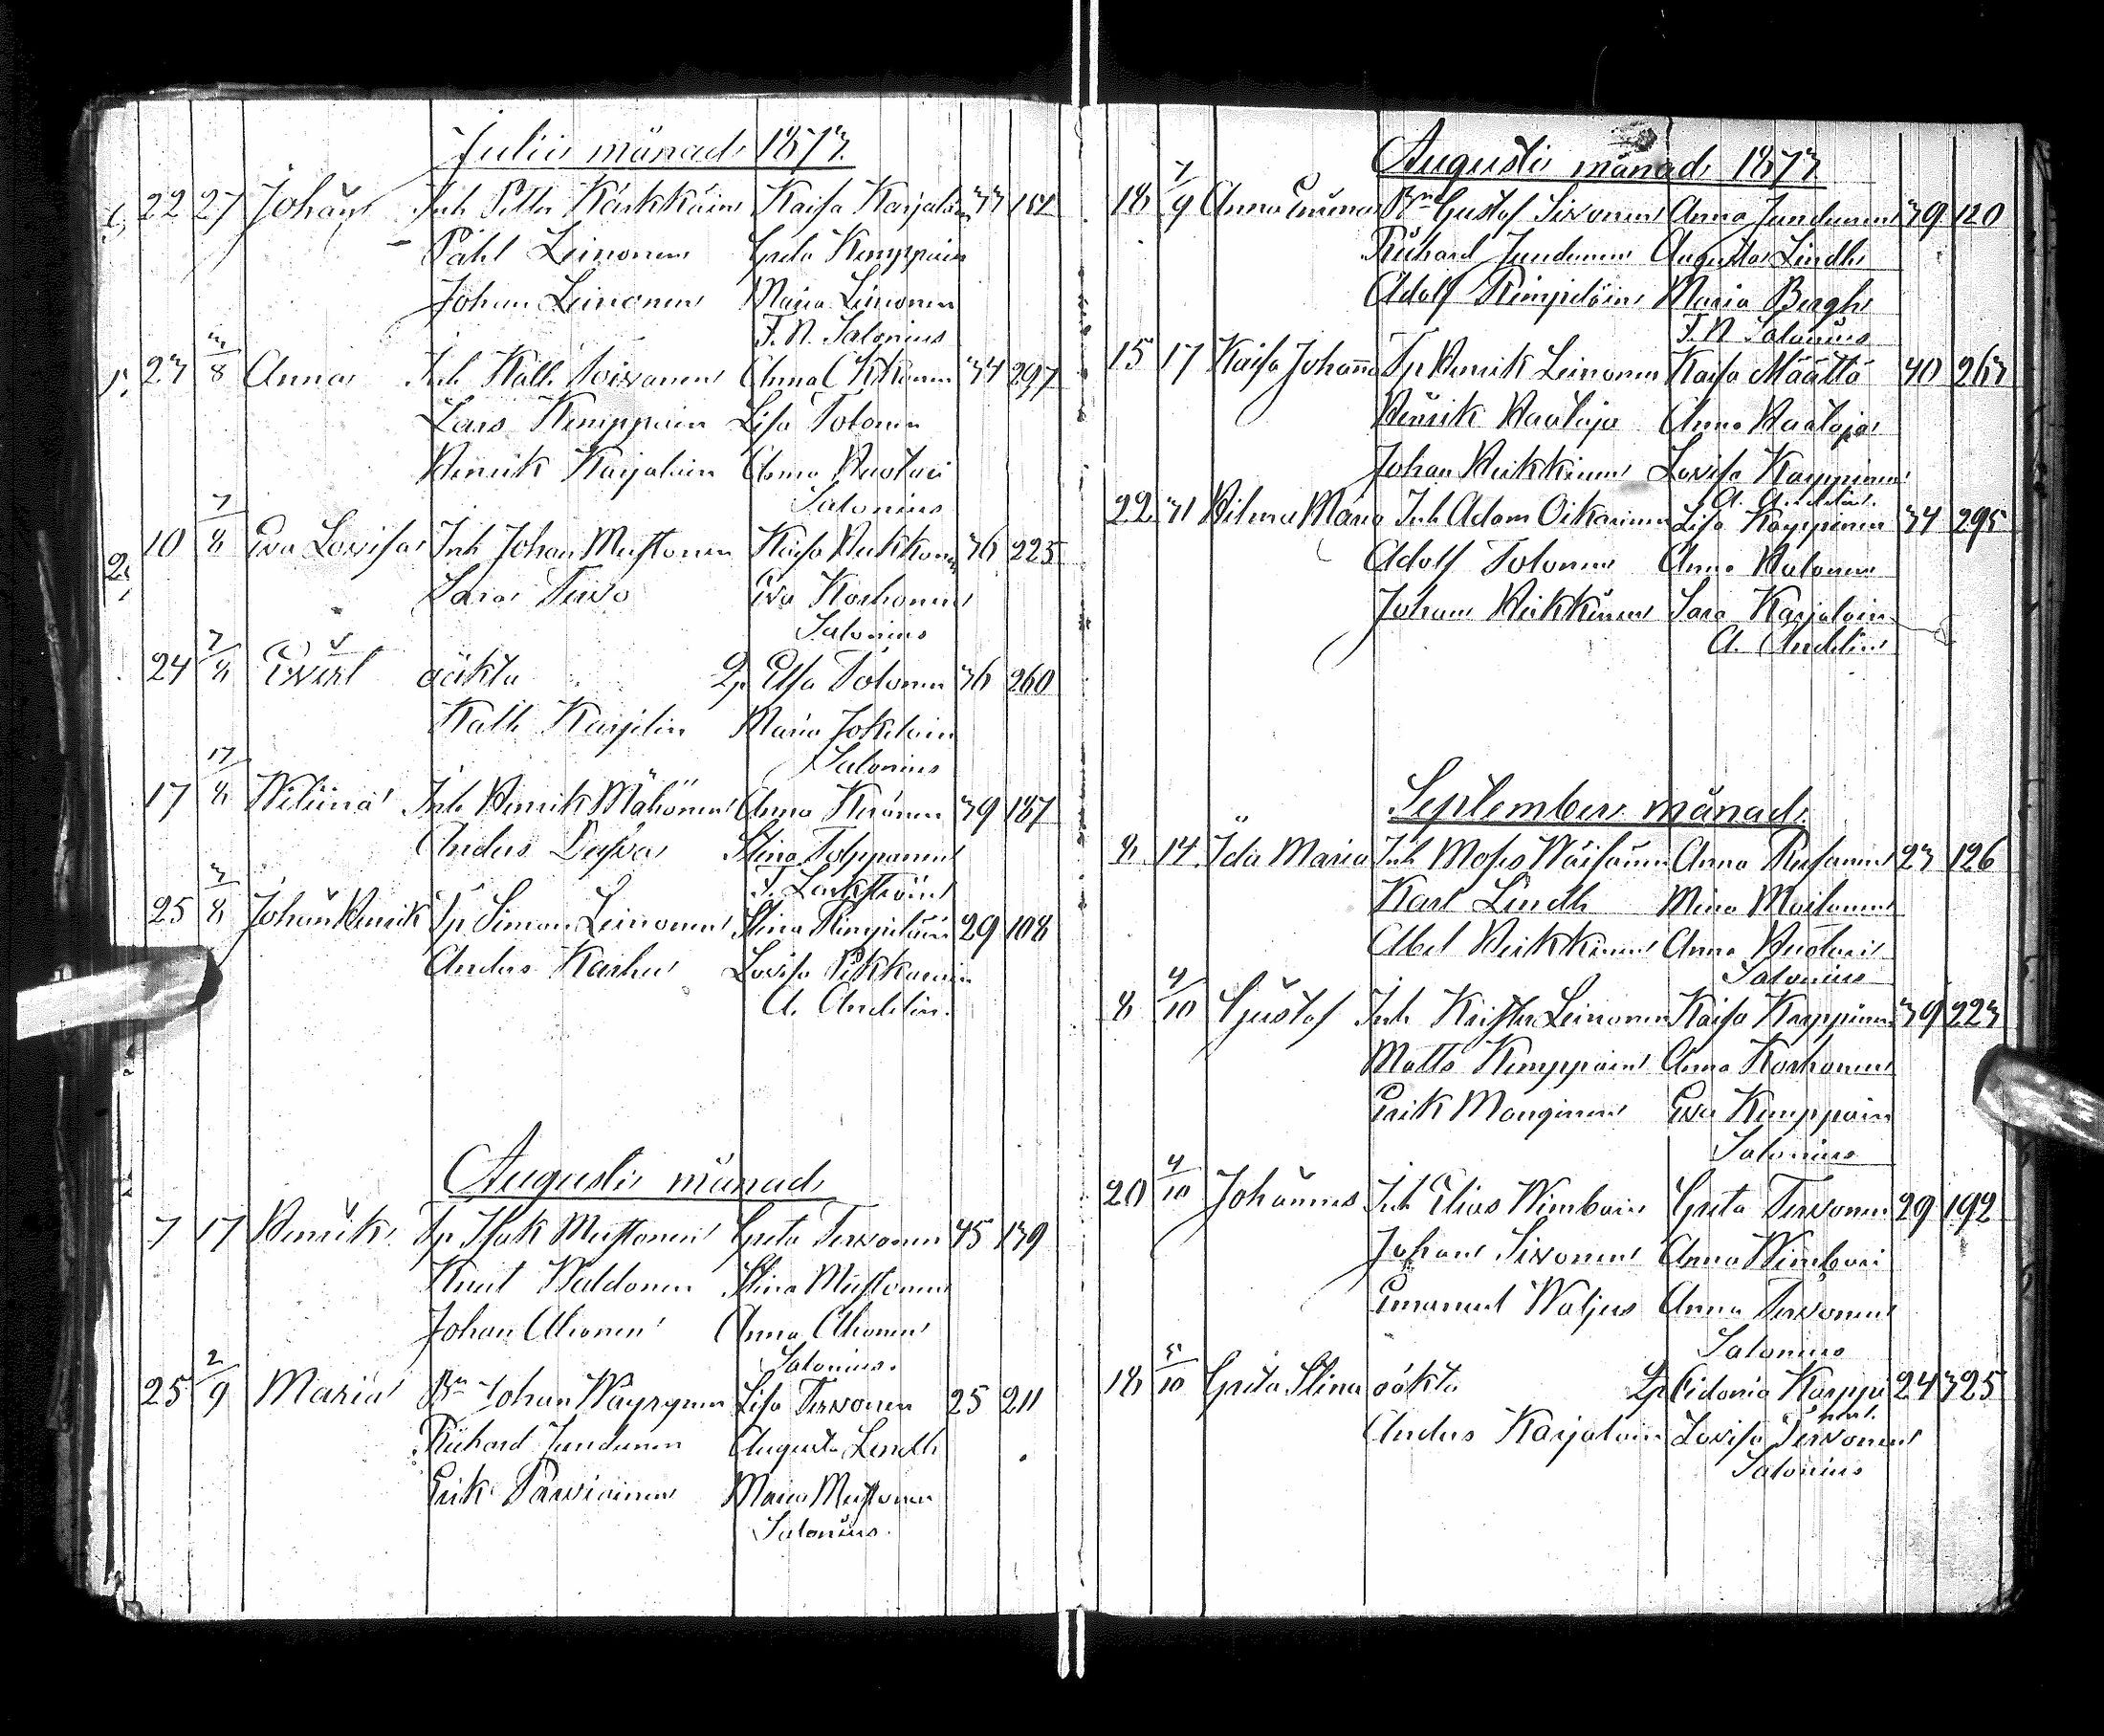 Julii månad 1873.
22 27 Johan Inh Petter Kärkkäin Kaisa Karjalain 33 151
Påhl Leinonen Greta Kemppain
Johan Leinonen Maria Leinonen
F. N. Salonius
23 3/8 Anna Inh Kall Toivonen Anna 34 297
Lars Kemppain Lisa Tolonen
Henrik Karjalain Anna Huotari
Salonius
10 7/8 Eva Lovisa Inh Johan Mustonen Kaisa 36 225
Tervo Eva Korhonen
Salonius
24 7/8 oäkta Elsa Tolonen 36 260
Kall Maria
Salonius
17 17/8 Inh Henrik Mähönen Anna Keränen 39 187
Anders Stina Tolppanen
25 3/8 Johan Henrik Sp Simon Leinonen Stina Rimpiläin 29 108
Anders Karhu Lovisa Pikkarain
A. Andelin.
Augusti månad
7 17 Henrik Sp Isak Mustonen Greta Tervonen 45 139
Knut Stina Mustonen
Johan Ahonen Anna Ahonen
Salonius.
25 2/9 Maria Bn Johan Wäyrynen Lisa Tervonen 25 211
Richard Jundunen Augusta Lindh
Erik Parviainen Maria Mustonen
Salonius.
Augusti månad 1873
18 7/9 Anna Emma Bn Gustaf Sivonen Anna Jundunen 39 120
Richard Jundunen Augusta Lindh
Adolf Rimpiläin Maria Bergh
F. N Salonius
15 17 Kaisa Johanna Sp Henrik Leinonen Kaisa Määttä 40 263
Henrik Haataja Anna Haataja
Johan Heikkinen Lovisa Karppinen
A. Andelin.
22 31 Hilma Maria Inh Adam Oikarinen Lisa Karppinen 34 295
Adolf Tolonen Anna
Johan Heikkinen Sara Karjalain
A. Andelin
September månad
8 14 Ida Maria Inh Moses Wäisänen Anna 23 126
Karl Lindh Mina Moilanen
Abel Heikkinen Anna Huotari
Salonius
8 4/10 Gustaf Inh Krister Leinonen Kaisa Karppinen 39 223
Matts Kemppain Anna Korhonen
Erik Manginen Eva Kemppain
Salonius
20 4/10 Johannes Inh Elias Wimbari Greta Tervonen 29 192
Johan Sivonen Anna Wimbari
Emanuel Waljus Anna Tervonen
Salonius
18 5/10 Greta Stina oäkta Cidonia Karppi 24 325
nen.
Anders Karjalain Lovisa Tervonen
Salonius